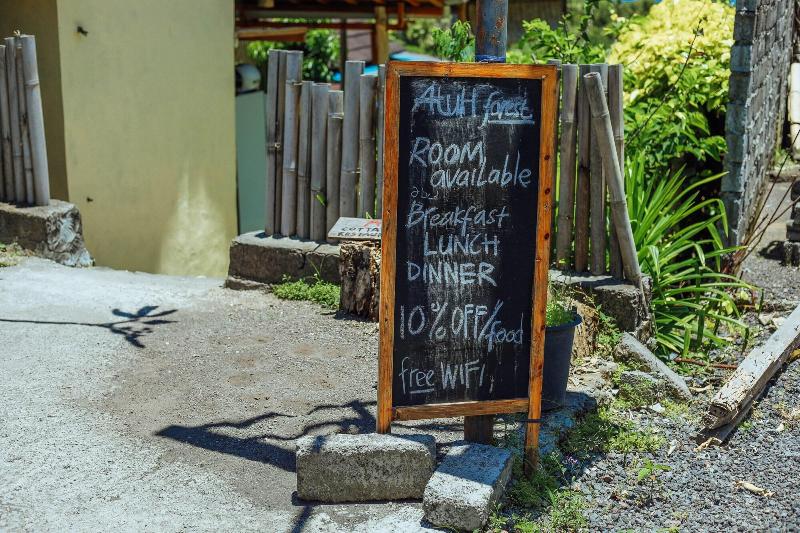 Atuh forest
ROOM
available
Breakfast
LUNCH
DINNER
10% OFF/food
free WIFI